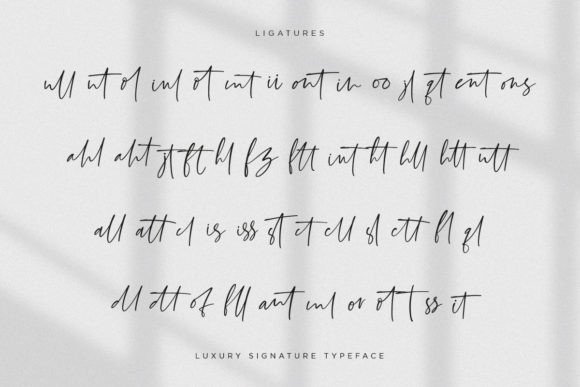 LIGATURES
ull ut ol inl ot mt ii ont in oo jl qt ent ons
ahl aht jt ft hl fz ftt int ht hll htt utt
all att cl is iss st ct cll sl ctt fl ql
dll dtt of fll ant ml or ott t ss it
LUXURY SIGNATURE TYPEFACE